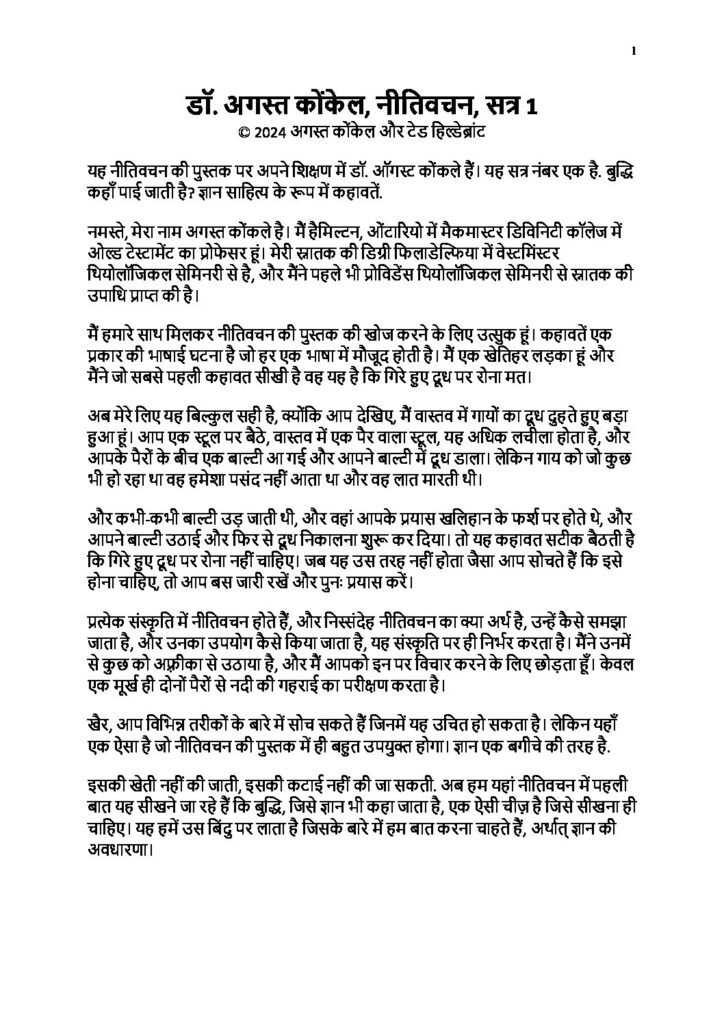 1
डॉ. अगस्त कोंकेल, नीतिवचन, सत्र 1
© 2024 अगस्त कोंकेल और टेड हिल्डेब्रांट
यह नीतिवचन की पुस्तक पर अपने शिक्षण में डॉ. ऑगस्ट कोंकले हैं। यह सत्र नंबर एक है. बुद्धि
कहाँ पाई जाती है? ज्ञान साहित्य के रूप में कहावतें.
नमस्ते, मेरा नाम अगस्त कोंकले है। मैं हैमिल्टन, ओंटारियो में मैकमास्टर डिविनिटी कॉलेज में
ओल्ड टेस्टामेंट का प्रोफेसर हूं। मेरी स्नातक की डिग्री फिलाडेल्फिया में वेस्टमिंस्टर
थियोलॉजिकल सेमिनरी से है, और मैंने पहले भी प्रोविडेंस थियोलॉजिकल सेमिनरी से स्नातक की
उपाधि प्राप्त की है।
मैं हमारे साथ मिलकर नीतिवचन की पुस्तक की खोज करने के लिए उत्सुक हूं। कहावतें एक
प्रकार की भाषाई घटना है जो हर एक भाषा में मौजूद होती है। मैं एक खेतिहर लड़का हूं और
मैंने जो सबसे पहली कहावत सीखी है वह यह है कि गिरे हुए दूध पर रोना मत।
अब मेरे लिए यह बिल्कुल सही है, क्योंकि आप देखिए, मैं वास्तव में गायों का दूध दुहते हुए बड़ा
हुआ हूं। आप एक स्टूल पर बैठे, वास्तव में एक पैर वाला स्टूल, यह अधिक लचीला होता है, और
आपके पैरों के बीच एक बाल्टी आ गई और आपने बाल्टी में दूध डाला। लेकिन गाय को जो कुछ
भी हो रहा था वह हमेशा पसंद नहीं आता था और वह लात मारती थी।
और कभी-कभी बाल्टी उड़ जाती थी, और वहां आपके प्रयास खलिहान के फर्श पर होते थे, और
आपने बाल्टी उठाई और फिर से दूध निकालना शुरू कर दिया। तो यह कहावत सटीक बैठती है
कि गिरे हुए दूध पर रोना नहीं चाहिए। जब यह उस तरह नहीं होता जैसा आप सोचते हैं कि इसे
होना चाहिए, तो आप बस जारी रखें और पुनः प्रयास करें।
प्रत्येक संस्कृति में नीतिवचन होते हैं, और निस्संदेह नीतिवचन का क्या अर्थ है, उन्हें कैसे समझा
जाता है, और उनका उपयोग कैसे किया जाता है, यह संस्कृति पर ही निर्भर करता है। मैंने उनमें
से कुछ को अफ़्रीका से उठाया है, और मैं आपको इन पर विचार करने के लिए छोड़ता हूँ। केवल
एक मूर्ख ही दोनों पैरों से नदी की गहराई का परीक्षण करता है।
खैर, आप विभिन्न तरीकों के बारे में सोच सकते हैं जिनमें यह उचित हो सकता है। लेकिन यहाँ
एक ऐसा है जो नीतिवचन की पुस्तक में ही बहुत उपयुक्त होगा। ज्ञान एक बगीचे की तरह है.
इसकी खेती नहीं की जाती, इसकी कटाई नहीं की जा सकती. अब हम यहां नीतिवचन में पहली
बात यह सीखने जा रहे हैं कि बुद्धि, जिसे ज्ञान भी कहा जाता है, एक ऐसी चीज़ है जिसे सीखना ही
चाहिए। यह हमें उस बिंदु पर लाता है जिसके बारे में हम बात करना चाहते हैं, अर्थात् ज्ञान की
अवधारणा।